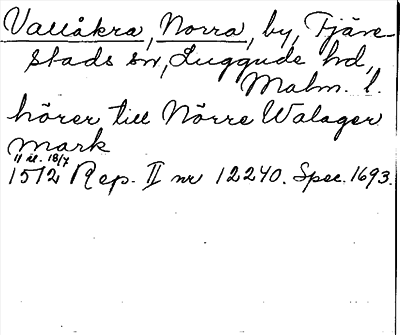 Vallåkra, Norra, by, Fjäre-
stads sn, Luggude hd,
Malm. l.
hörer till Nörre Walager
mark
11 al. 18/7
1512 Rep. II nr 12240. Spec. 1693.